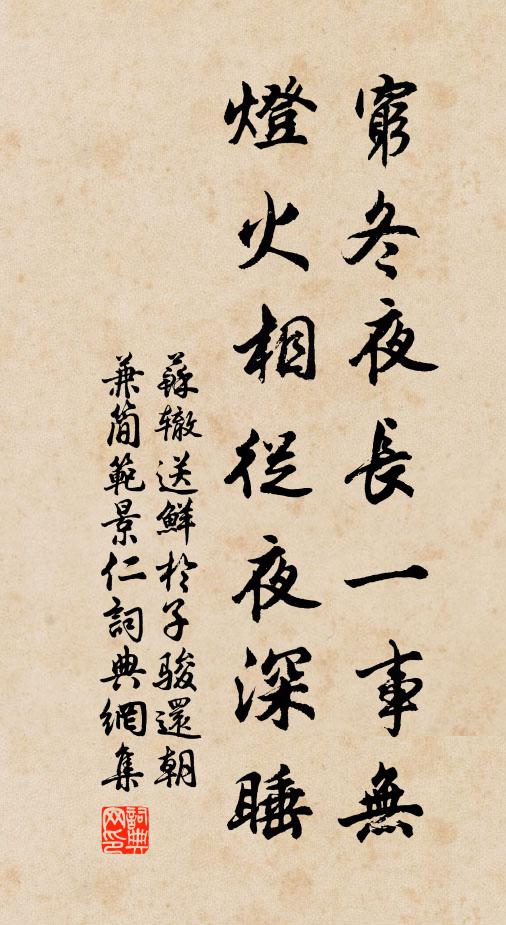 窮冬夜長一事無
燈火相從夜深睡
蘇辙送鮮於子駿還朝
兼簡範景仁詞典網集
詞典
网印